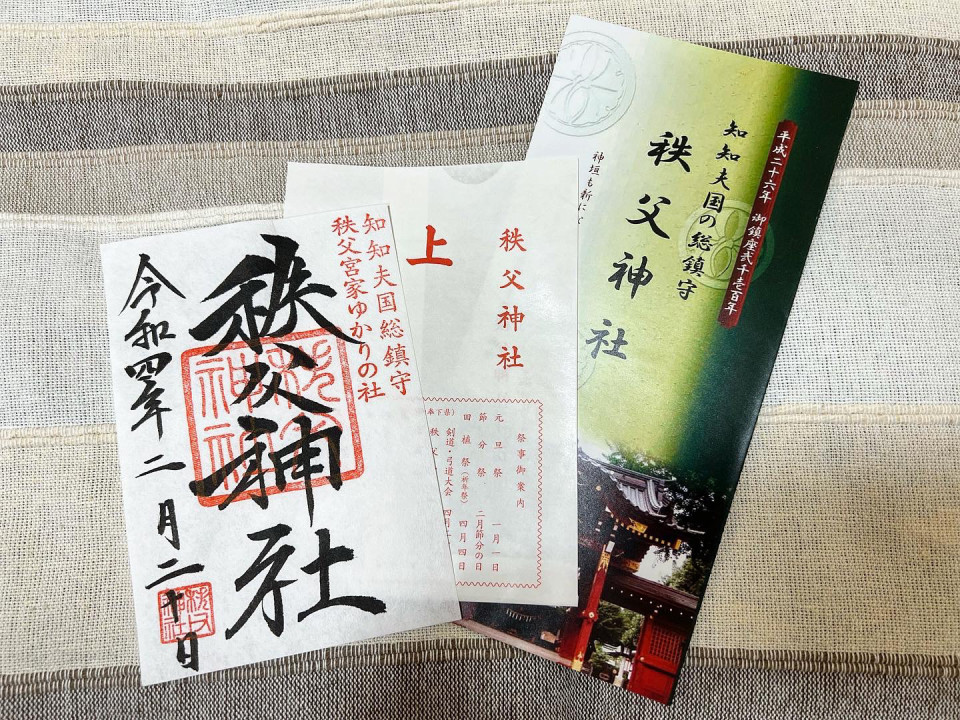 知知夫国総鎮守
秩父宮家ゆかりの社
秩父神社
令和四年 二月二十日
秩父神社
上
祭事御案内
元旦祭 一月一日
節分祭 二月節分の日
田植祭(祈年祭) 四月四日
剣道・弓道大会 四月
秩父
平成二十六年 御鎮座弐千壱百年
知知夫国の総鎮守
秩父神社
神垣も新に